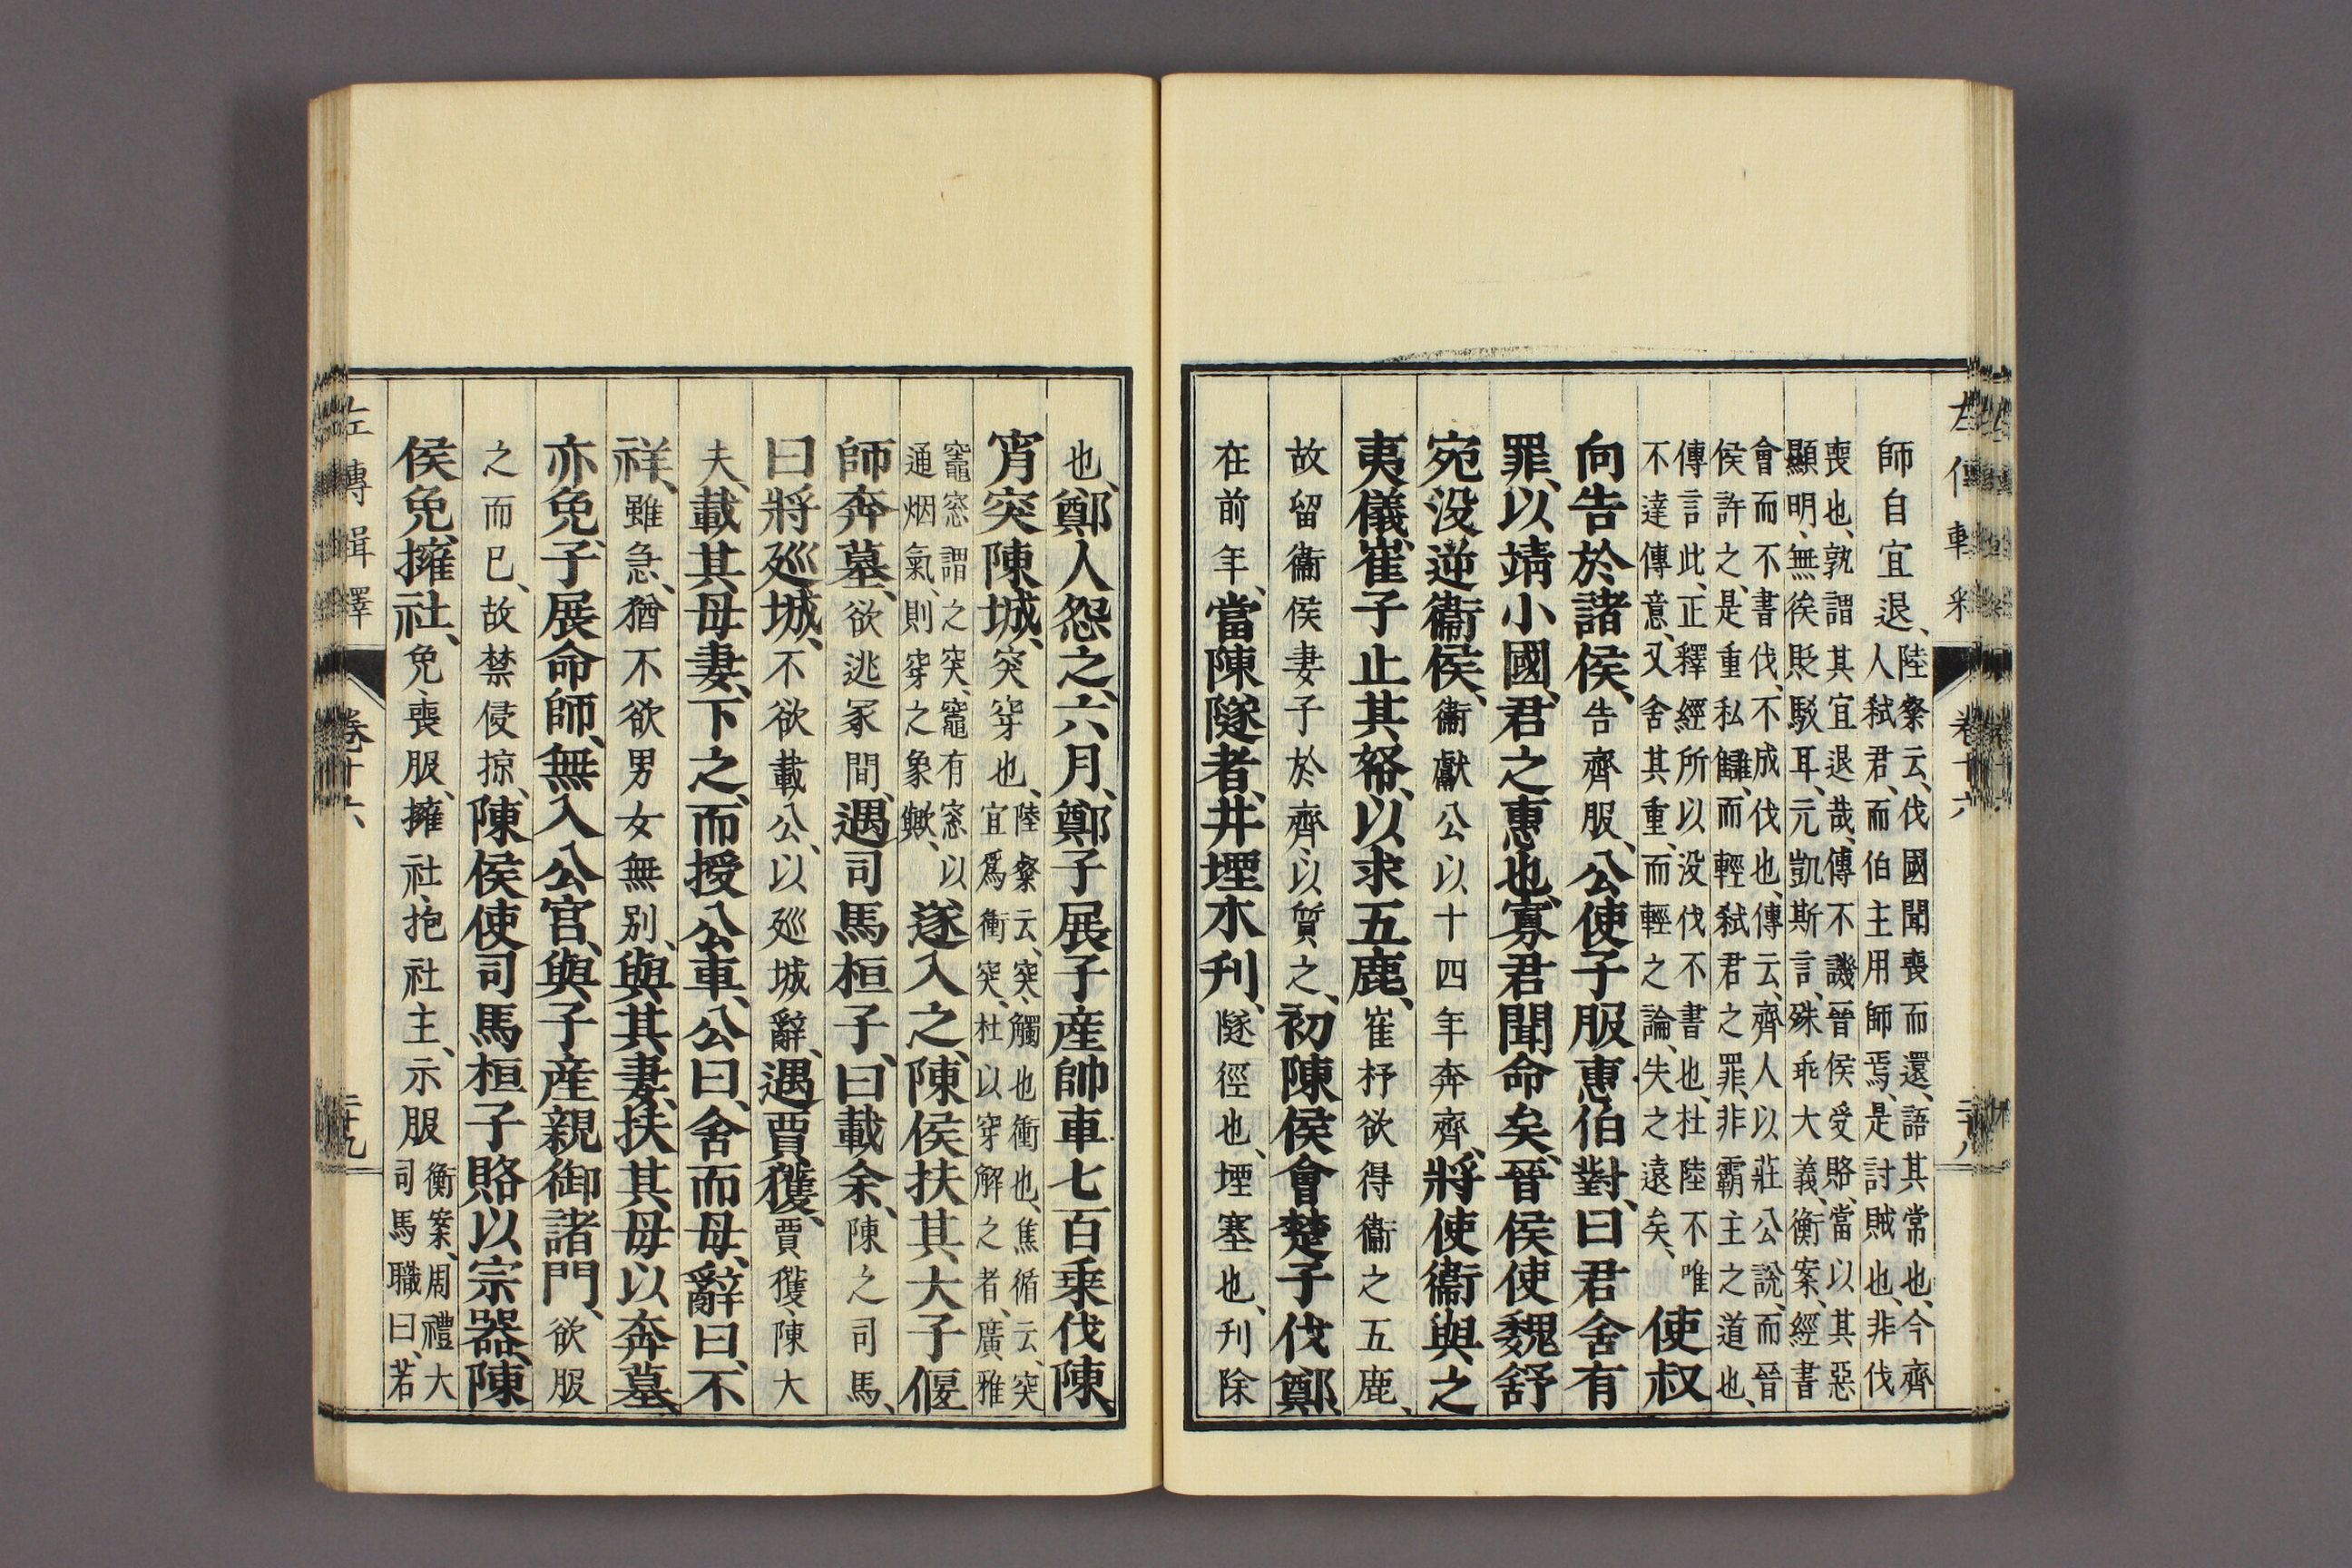 師自宜退、陸粲云、伐國聞喪而還、語其常也、今齊人弑君、而伯主用師焉、是討賊也、非伐
喪也、孰謂其宜退哉、傳不譏晉侯受賂、當以其惡顯明、無俟貶駁耳、元凱斯言、殊乖大義、衡案、經書
會而不書伐、不成伐也、傳云、齊人以莊公說、而晉侯許之、是重私讎、而輕弑君之罪、非霸主之道也、
傳言此、正釋經所以没伐不書也、杜陸不唯不達傳意、又舍其重、而輕之論、失之遠矣、使叔
向告於諸侯、告齊服、公使子服惠伯對、曰君舍有
罪、以靖小國、君之惠也、寡君聞命矣、晉侯使魏舒
宛没逆衞侯、衞獻公以十四年奔齊、將使衞與之
夷儀、崔子止其帑、以求五鹿、崔杼欲得衞之五鹿、
故留衞侯妻子於齊、以質之、初陳侯會楚子伐鄭
在前年、當陳隧者、井堙木刋、隧徑也、堙塞也、刋除
也、鄭人怨之、六月、鄭子展子産帥車七百乗伐陳、
宵突陳城、突穿也、陸粲云、突、觸也衝也、焦循云、突宜爲衝突、杜以穿解之者、廣雅
竈窓謂之突、竈有窓、以通烟氣、則穿之象歟、遂入之、陳侯扶其大子偃
師奔墓、欲逃冢間、遇司馬桓子、曰載余、陳之司馬、
曰將廵城、不欲載公、以廵城辭、遇賈獲、賈獲、陳大
夫、載其母妻、下之、而授公車、公曰、舍而母、辭曰、不
祥、雖急、猶不欲男女無別、與其妻、扶其母以奔墓、
亦免、子展命師、無入公宮、與子産親御諸門、欲服
之而已、故禁侵掠、陳侯使司馬桓子賂以宗器、陳
侯免、擁社、免、喪服、擁社、抱社主、示服、衡案、周禮大司馬職曰、若
左傳輯釋 卷十六 二十九
卷十六 二十八